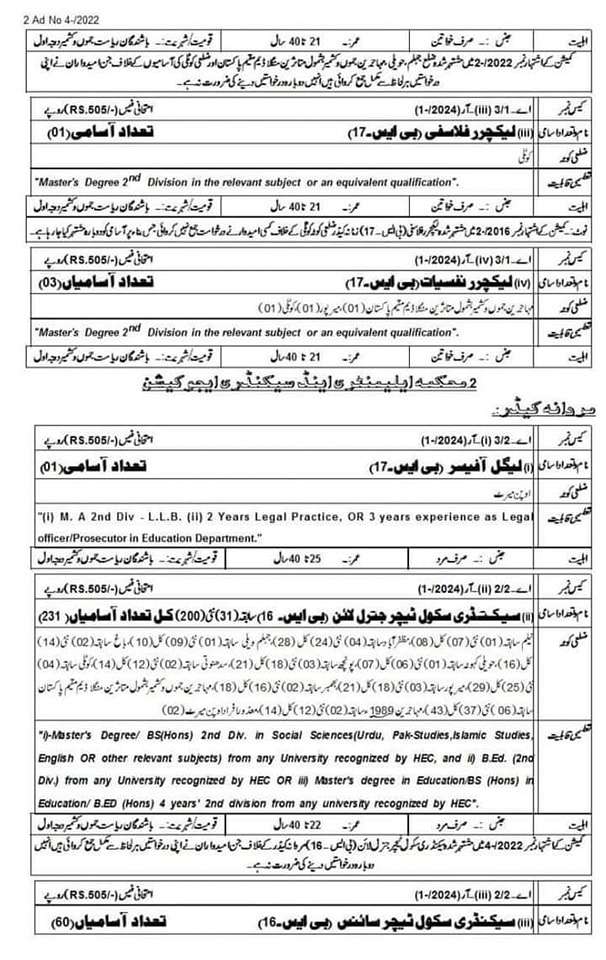 2 Ad No 4-/2022
اہلیت جنس :۔ صرف خواتین عمر:۔ 21 تا 40 سال قومیت/شہریت:۔ باشندگان ریاست جموں و کشمیر درجہ اول
کمیشن کے اشتہار نمبر 2/2022-میں مشتہر شدہ ضلع جہلم، حویلی، مہاجرین جموں و کشمیر بشمول متاثرین منگلا ڈیم مقیم پاکستان اور ضلعی کوٹلی کی آسامیوں کے خلاف جن امیدواران نے اپنی
درخواستیں ہر لحاظ سے مکمل جمع کروائی ہیں انہیں دوبارہ درخواستیں دینے کی ضرورت نہ ہے۔
کیس نمبر اے۔3/1 (iii) آر(2024/-1) امتحانی فیس (-/RS.505) روپے
نام و تعداد اسامی (iii) لیکچرر فلاسفی (بی ایس۔17) تعداد آسامی (01)
ضلعی کوٹہ کوٹلی
تعلیمی قابلیت "Master's Degree 2nd Division in the relevant subject or an equivalent qualification".
اہلیت جنس :۔ صرف خواتین عمر:۔ 21 تا 40 سال قومیت/شہریت:۔ باشندگان ریاست جموں و کشمیر درجہ اول
نوٹ: کمیشن کے اشتہار نمبر 2/2016-میں مشتہر شدہ لیکچرر فلاسفی (بی ایس۔17) زنانہ کیڈر ضلعی کوٹہ کوٹلی کے خلاف کسی امیدوار نے درخواست جمع نہیں کروائی جس بناء پر آسامی کو دوبارہ مشتہر کیا جا رہا ہے۔
کیس نمبر اے۔3/1 (iv) آر(2024/-1) امتحانی فیس (-/RS.505) روپے
نام و تعداد اسامی (iv) لیکچرر نفسیات (بی ایس۔17) تعداد آسامیاں (03)
ضلعی کوٹہ مہاجرین جموں و کشمیر بشمول متاثرین منگلا ڈیم مقیم پاکستان (01)، میرپور (01)، کوٹلی (01)
تعلیمی قابلیت "Master's Degree 2nd Division in the relevant subject or an equivalent qualification".
اہلیت جنس :۔ صرف خواتین عمر:۔ 21 تا 40 سال قومیت/شہریت:۔ باشندگان ریاست جموں و کشمیر درجہ اول
2 محکمہ ایلیمنٹری اینڈ سیکنڈری ایجوکیشن
مردانہ کیڈر:۔
کیس نمبر اے۔3/2 (i) آر(2024/-1) امتحانی فیس (-/RS.505) روپے
نام و تعداد اسامی (i) لیگل آفیسر (بی ایس۔17) تعداد آسامی (01)
ضلعی کوٹہ اوپن میرٹ
تعلیمی قابلیت "(i) M. A 2nd Div - L.L.B. (ii) 2 Years Legal Practice, OR 3 years experience as Legal
officer/Prosecutor in Education Department."
اہلیت جنس :۔ صرف مرد عمر:۔ 25 تا 40 سال قومیت/شہریت:۔ باشندگان ریاست جموں و کشمیر درجہ اول
کیس نمبر اے۔2/2 (ii) آر(2024/-1) امتحانی فیس (-/RS.505) روپے
نام و تعداد اسامی (ii) سیکنڈری سکول ٹیچر جنرل لائن (بی ایس۔ 16) سابقہ (31) نئی (200) کل تعداد آسامیاں (231)
ضلعی کوٹہ نیلم سابقہ (01) نئی (07) کل (08)، مظفرآباد سابقہ (04) نئی (24) کل (28)، جہلم ویلی سابقہ (01) نئی (09) کل (10)، باغ سابقہ (02) نئی (14)
کل (16)، حویلی کہوٹہ سابقہ (01) نئی (06) کل (07)، پونچھ سابقہ (03) نئی (18) کل (21)، سدھنوتی سابقہ (02) نئی (12) کل (14)، کوٹلی سابقہ (04)
نئی (25) کل (29)، میرپور سابقہ (03) نئی (18) کل (21)، بھمبر سابقہ (02) نئی (16) کل (18)، مہاجرین جموں و کشمیر بشمول متاثرین منگلا ڈیم مقیم پاکستان
سابقہ (06) نئی (37) کل (43)، مہاجرین 1989ء سابقہ (02) نئی (12) کل (14)، معذور افراد اوپن میرٹ (02)
تعلیمی قابلیت "i)-Master's Degree/ BS(Hons) 2nd Div. in Social Sciences(Urdu, Pak-Studies,Islamic Studies,
English OR other relevant subjects) from any University recognized by HEC, and ii) B.Ed. (2nd
Div.) from any University recognized by HEC OR iii) Master's degree in Education/BS (Hons) in
Education/ B.ED (Hons) 4 years' 2nd division from any university recognized by HEC".
اہلیت جنس :۔ صرف مرد عمر:۔ 22 تا 40 سال قومیت/شہریت:۔ باشندگان ریاست جموں و کشمیر درجہ اول
کمیشن کے اشتہار نمبر 4/2022-میں مشتہر شدہ سیکنڈری سکول ٹیچر جنرل لائن (بی ایس۔16) مردانہ کیڈر کے خلاف جن امیدواران نے اپنی درخواستیں ہر لحاظ سے مکمل جمع کروائی ہیں انہیں
دوبارہ درخواستیں دینے کی ضرورت نہ ہے۔
کیس نمبر اے۔2/2 (iii) آر(2024/-1) امتحانی فیس (-/RS.505) روپے
نام و تعداد اسامی (iii) سیکنڈری سکول ٹیچر سائنس (بی ایس۔16) تعداد آسامیاں (60)